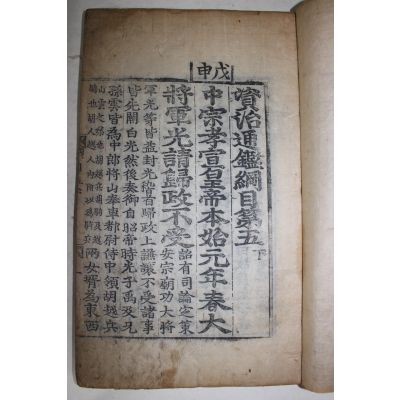 資治通鑑綱目第五 下
戊申
中宗孝宣皇帝本始元年春大
將軍光請歸政不受 詔有司論定策
安宗廟功大將
軍光等皆益封光稽首歸政上謙讓不受諸事
皆先關白光然後奏御自昭帝時光子禹及兄
孫雲皆爲中郎將山奉車都尉侍中領胡越兵
兩女壻爲東西